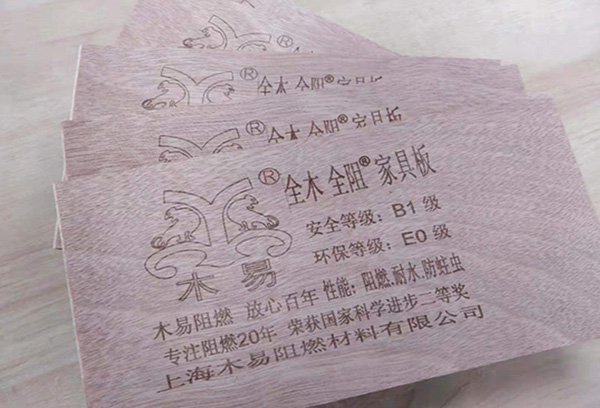 ® 全木 全阻® 家具板
® 全木 全阻® 家具板
® 全木 全阻® 家具板
安全等级：B1 级
环保等级：E0 级
木易
木易阻燃 放心百年 性能：阻燃.耐水.防蛀虫
专注阻燃20年 荣获国家科学进步二等奖
上海木易阻燃材料有限公司